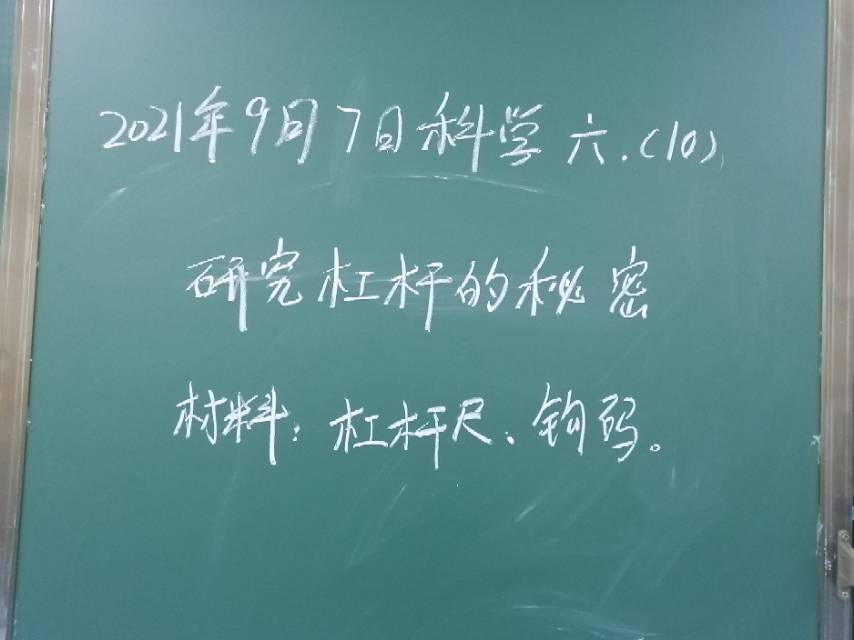 2021年9月7日科学 六.(10)
研究杠杆的秘密
材料：杠杆尺、钩码。